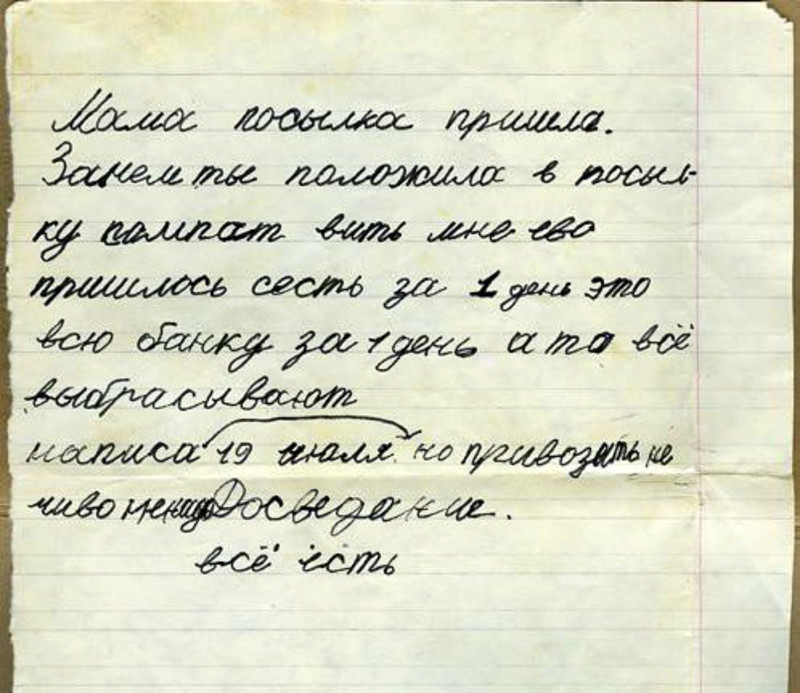 Мама посылка пришла.
Зачем ты положила в посыл-
ку компот вить мне ево
пришлось сесть за 1 день это
всю банку за 1 день а то всё
выбрасывают
написа 19 июля. но привозить не
чиво не Досведание.
всё есть